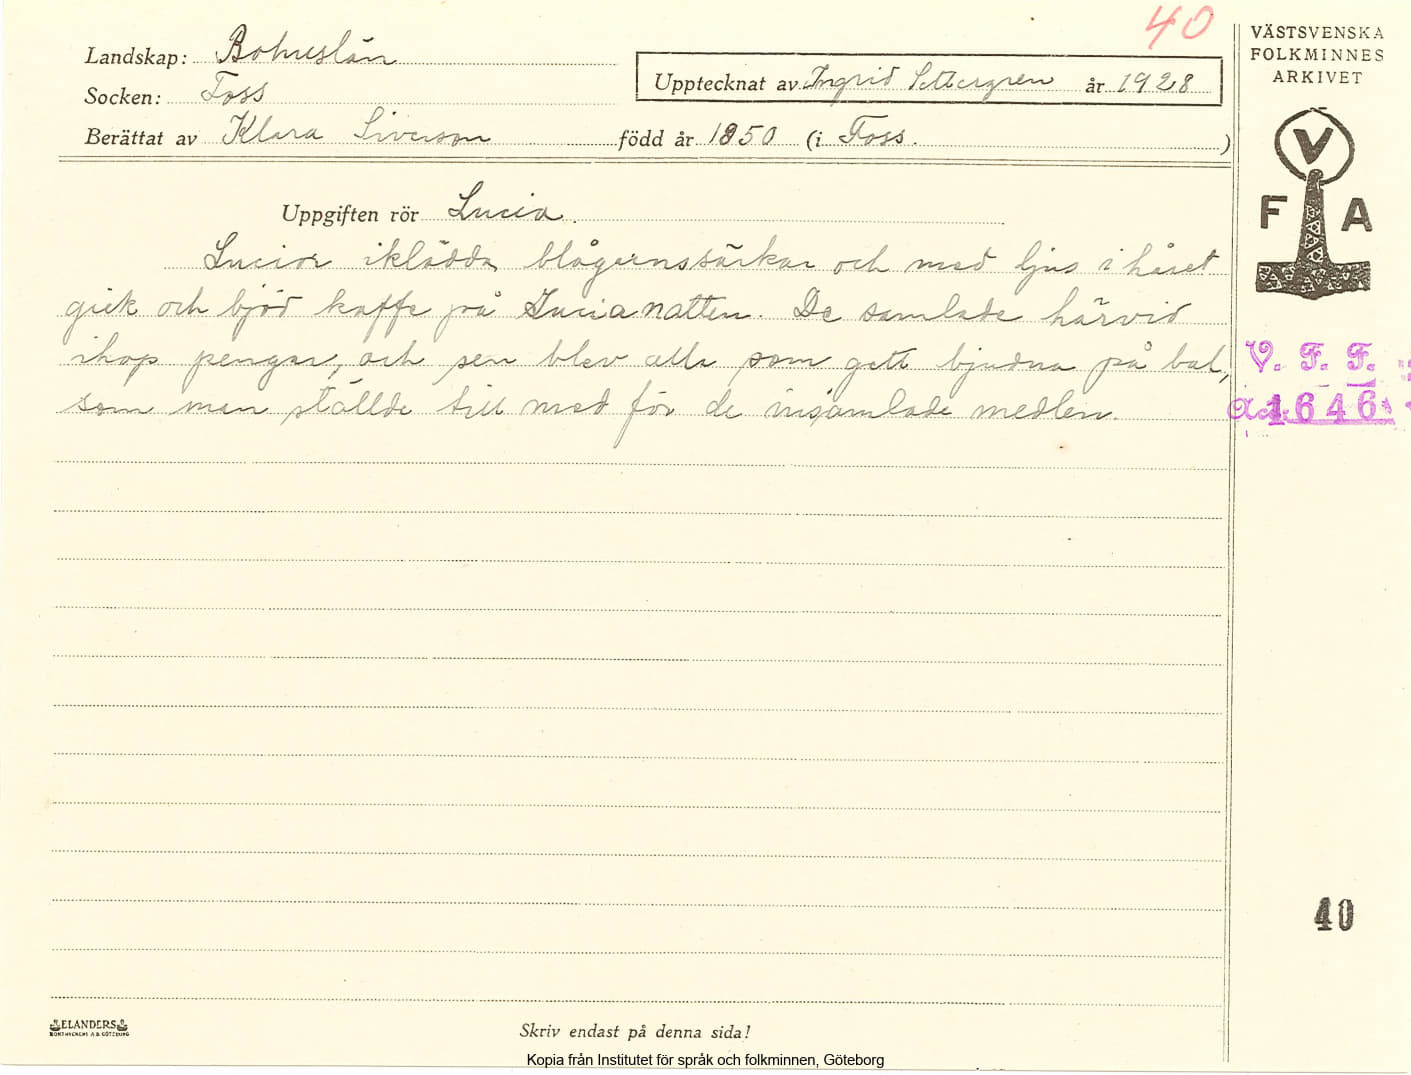 40
VÄSTSVENSKA
FOLKMINNES
ARKIVET
Landskap: Bohuslän
Socken: Foss
Upptecknat av Ingrid Settergren år 1928
Berättat av Klara Siverson född år 1850 (i Foss.)
V
F A
Uppgiften rör Lucia.
Lucior iklädda blågarnssärkar och med ljus i håret
gick och bjöd kaffe på Lucianatten. De samlade härvid
ihop pengar, och sen blev alla som gett bjudna på bal,
som man ställde till med för de insamlade medlen.
V. F. F.
Acc. 1646
40
ELANDERS
BOKTRYCKERI A.B. GÖTEBORG
Skriv endast på denna sida!
Kopia från Institutet för språk och folkminnen, Göteborg